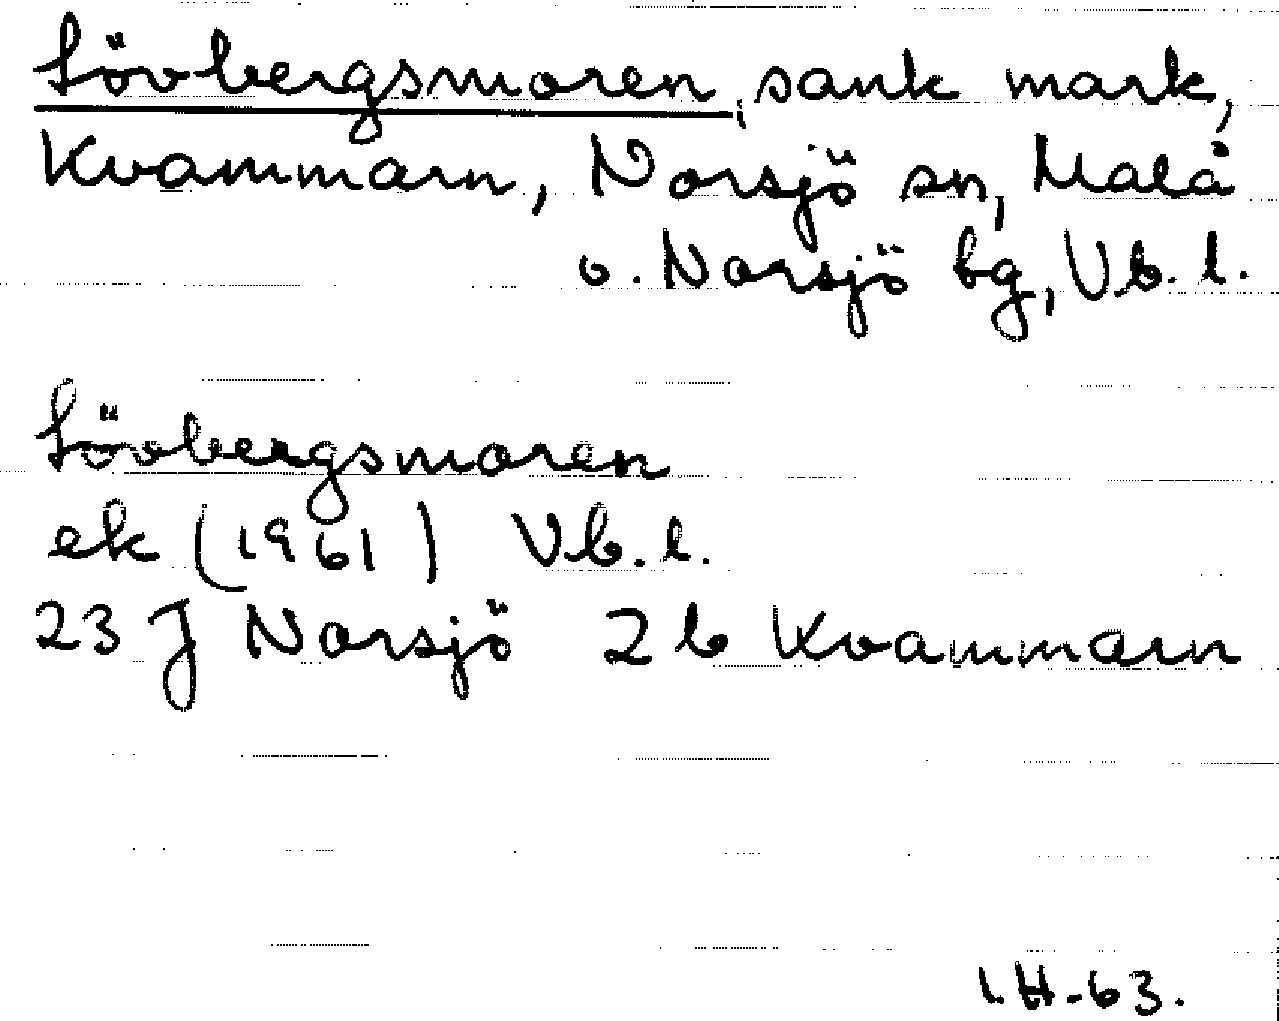 Lövbergsmoren, sank mark,
Kvammarn, Norsjö sn, Malå
o. Norsjö bg, Vb. l.
Lövbergsmoren
ek (1961) Vb. l.
23 J Norsjö 2 b Kvammarn
I.H-63.